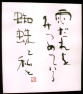 雨だれを
みつめている
蜘蛛と私と